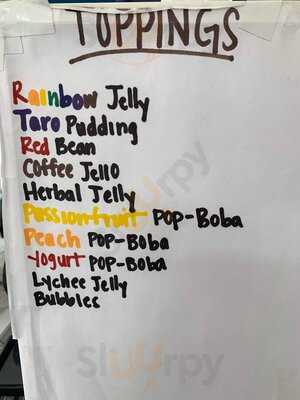 TOPPINGS
Rainbow Jelly
Taro Pudding
Red Bean
Coffee Jello
Herbal Jelly
Passionfruit Pop-Boba
Peach Pop-Boba
Yogurt Pop-Boba
Lychee Jelly
Bubbles
Sluurpy
Sluurpy